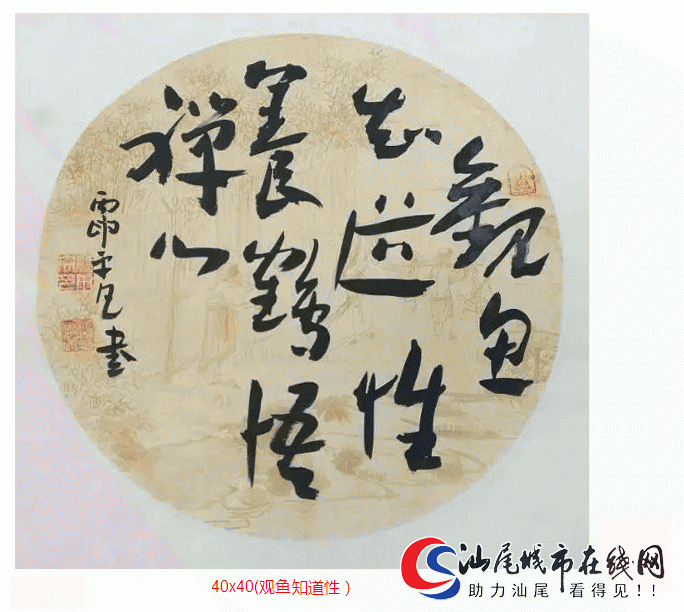 觀魚
知道性
養鶴悟
禪心
平凡書
40x40(观鱼知道性)
汕尾城市在线网
助力汕尾 看得见!!